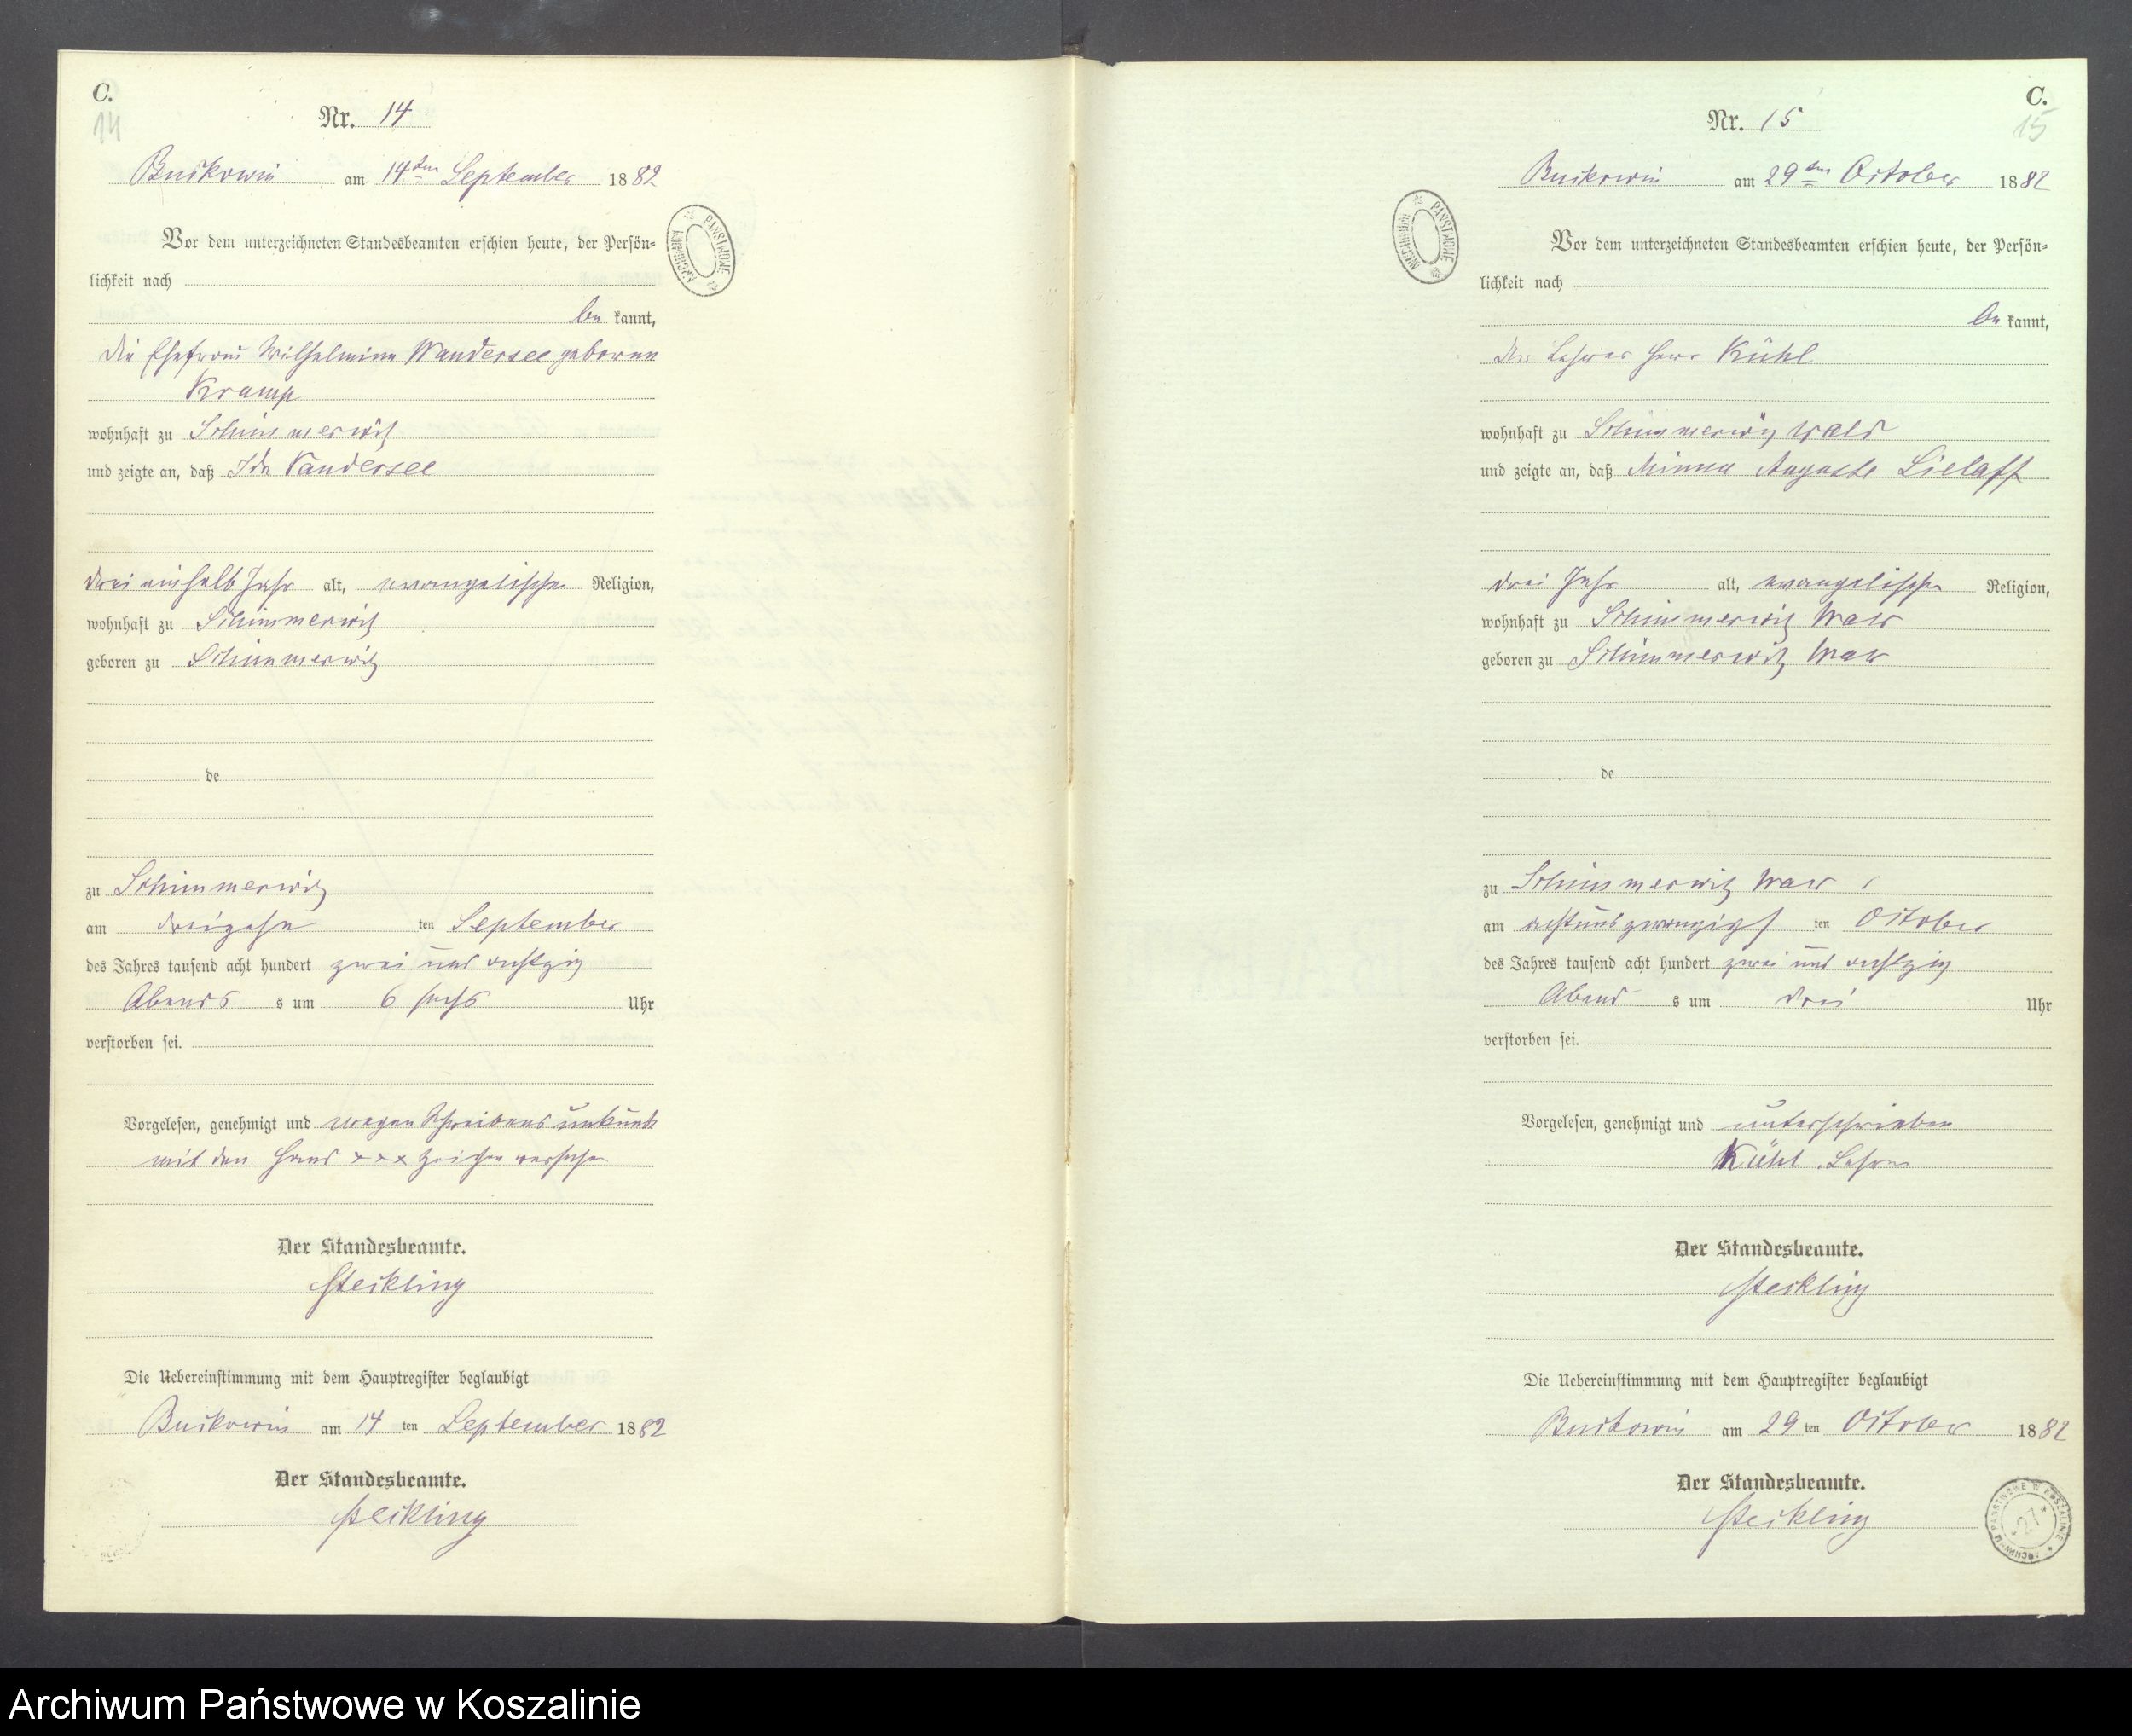 C.
14
Nr. 14
Buckowin am 14ten September 1882
Vor dem unterzeichneten Standesbeamten erschien heute, der Persön=
lichkeit nach
be kannt,
die Ehefrau Wilhelmine Wandersee geborene
Kramp
wohnhaft zu Schimmerwitz
und zeigte an, daß Ida Wandersee
drei einhalb Jahr alt, evangelischer Religion,
wohnhaft zu Schimmerwitz
geboren zu Schimmerwitz
de
zu Schimmerwitz
am dreizehn ten September
des Jahres tausend acht hundert zwei und achtzig
Abends s um 6 sechs Uhr
verstorben sei.
Vorgelesen, genehmigt und wegen Schreibens unkunde
mit den Hand xxx Zeichen versehen
Der Standesbeamte.
Steckling
Die Uebereinstimmung mit dem Hauptregister beglaubigt
Buckowin am 14 ten September 1882
Der Standesbeamte.
Steckling
ARCHIWUM PAŃSTWOWE
C.
15
Nr. 15
Buckowin am 29ten October 1882
Vor dem unterzeichneten Standesbeamten erschien heute, der Persön=
lichkeit nach
be kannt,
der Lehrer Herr Kühl
wohnhaft zu Schimmerwitz Wald
und zeigte an, daß Minna Auguste Lielaff
drei Jahr alt, evangelischer Religion,
wohnhaft zu Schimmerwitz Wald
geboren zu Schimmerwitz Wald
de
zu Schimmerwitz Wald
am achtundzwanzigst ten October
des Jahres tausend acht hundert zwei und achtzig
Abend s um drei Uhr
verstorben sei.
Vorgelesen, genehmigt und unterschrieben
Kühl, Lehrer
Der Standesbeamte.
Steckling
Die Uebereinstimmung mit dem Hauptregister beglaubigt
Buckowin am 29 ten October 1882
Der Standesbeamte.
Steckling
ARCHIWUM PAŃSTWOWE
ARCHIWUM PAŃSTWOWE W KOSZALINIE
27
Archiwum Państwowe w Koszalinie